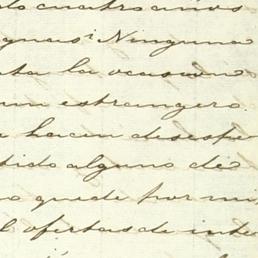 cuatro años
guas; Ninguna
ta la ocasion
un estrangero.
hacen desespe
tido alguno de
o quede por mi,
l ofertas de inte